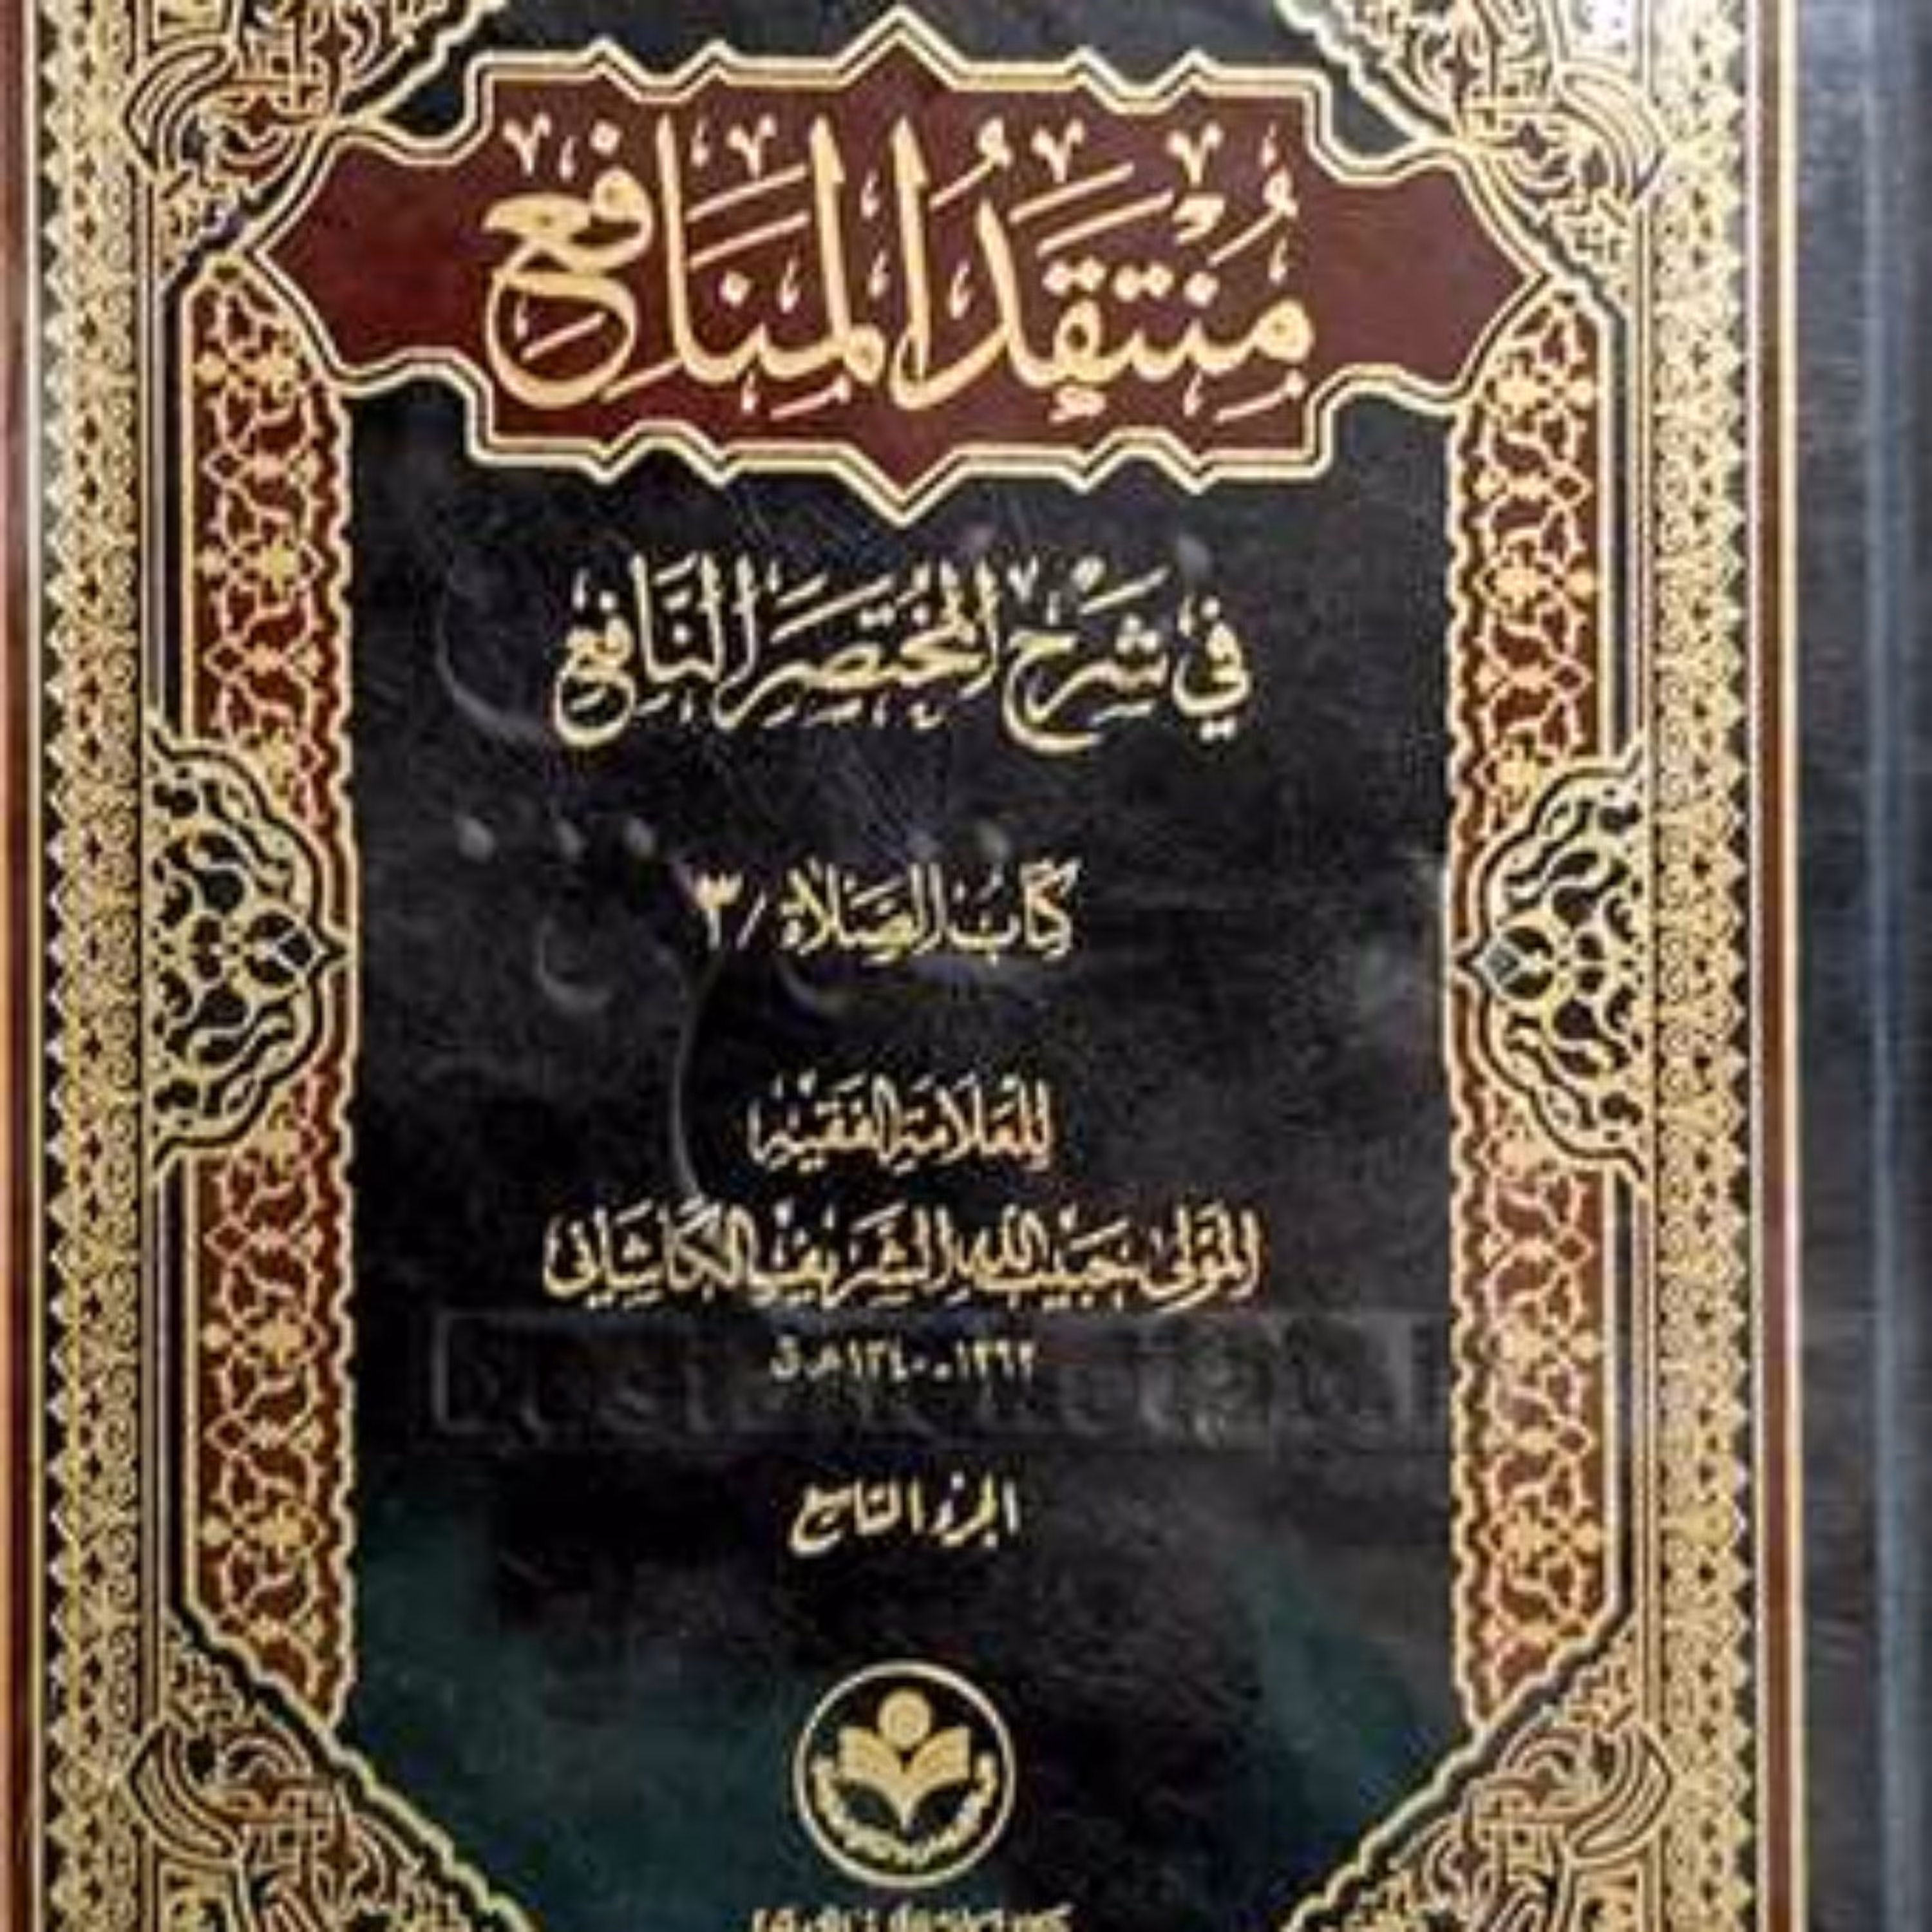 مُنْتَقَدُ المَنَافِعِ
فِي شَرْحِ المُخْتَصَرِ النَّافِعِ
كِتَابُ الصَّلَاةِ / ٣
لِلعَلَّامَةِ الفَقِيْهِ
المَوْلَى حَبِيْبِ اللهِ الشَّرِيْفِ الكَاشَانِي
١٢٦٢ - ١٣٤٠ هـ ق
الجزء التاسع